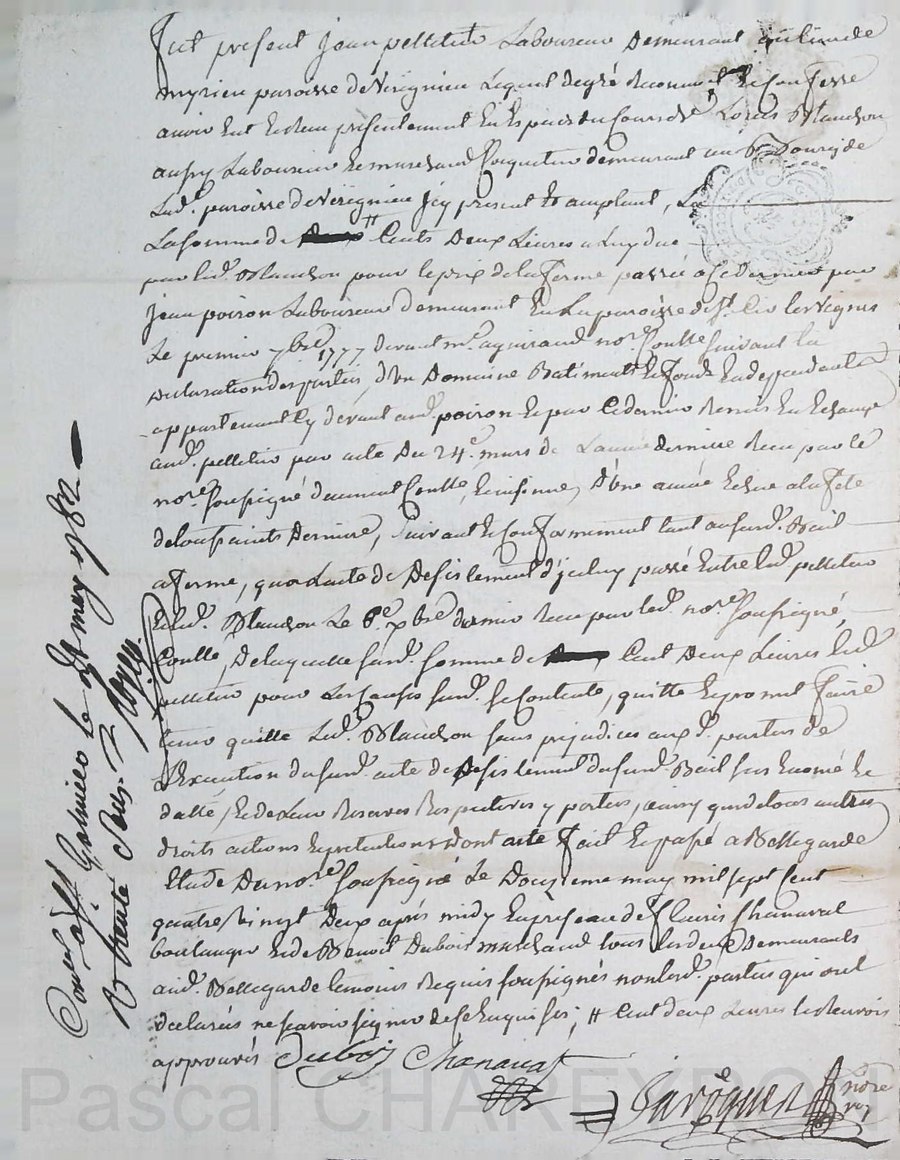 Fut present Jean pelletier Laboureur Demeurant au lieu de
myrieu paroisse de Verignieu Lequel degré Reconnoit Et Confesse
avoir Eut Et Receu presentement En Espaces du Cours de Louis Blanchon
aussy Laboureur Demeurant au Bourg de
Lad. paroisse de Verignieu jcy present & acceptant,
La somme de Cents Deux Livres a Luy due
par led. Blanchon pour le prix de la ferme passée a Ce dernier par
Jean poiron Laboureur demeurant En La paroisse de St. Cir les Vignes
Le premier 7bre 1777 devant me. aguiraud nore. Coutte suivant la
Declaration des parties, d'un Domaine Batiments Et fonds En dependants
appartenant Cy devant aud. poiron Et par Ce dernier Remis En Echange
aud. pelletier par acte du 24e. mars de L'année derniere Receu par le
nore. soussigné deument Contte, D'une année Echue a la fete
de Toussaints Derniere, suivant Et Conformement tant au susd. Bail
a ferme, qu'a L'acte de Desistement d'jceluy passé Entre led. pelletier
Et led. Blanchon Le 6e. xbre dernier Receu par led. nore. soussigné,
Contte, De laquelle susd. somme de Cent Deux Livres led.
pelletier pour Les Causes susd. se Contente, quitte Et promet faire
tenir quitte Led. Blanchon sans prejudices auxd. parties de
L'Execution du susd. acte de Desistement du susd. Bail sus Enoncé Et
datté, Et de Leur Reserves Respectives y portées, ainsy que de tous autres
droits actions Et pretentions Dont acte fait Et passé a Bellegarde
Etude Du nore. soussigné Le Douzieme may mil sept Cent
quatre Vingt Deux après midy En presence de fleuris Chanavat
boulanger Et de Benoit Dubois marchand tous Les deux Demeurants
aud. Bellegarde temoins Requis soussignés non lesd. parties qui ont
declarées ne scavoir signer de Ce Enquises; # Cent deux Livres Et Renvois
approuvés Dubois Chanavat
Javogues nore
Pascal CHAREYRON
Conlé a St Galmier le may 1782
R trente Sols